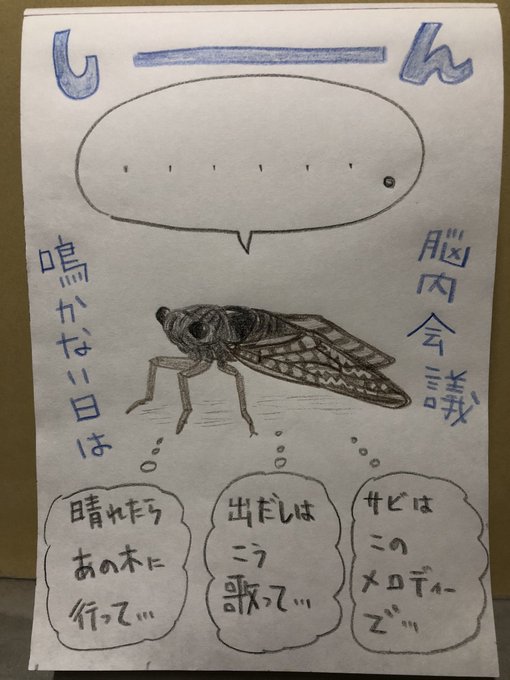 しーん
・・・・・・。
鳴かない日は
脳内会議
晴れたら
あの木に
行って…
出だしは
こう
歌って…
サビは
この
メロディー
で…